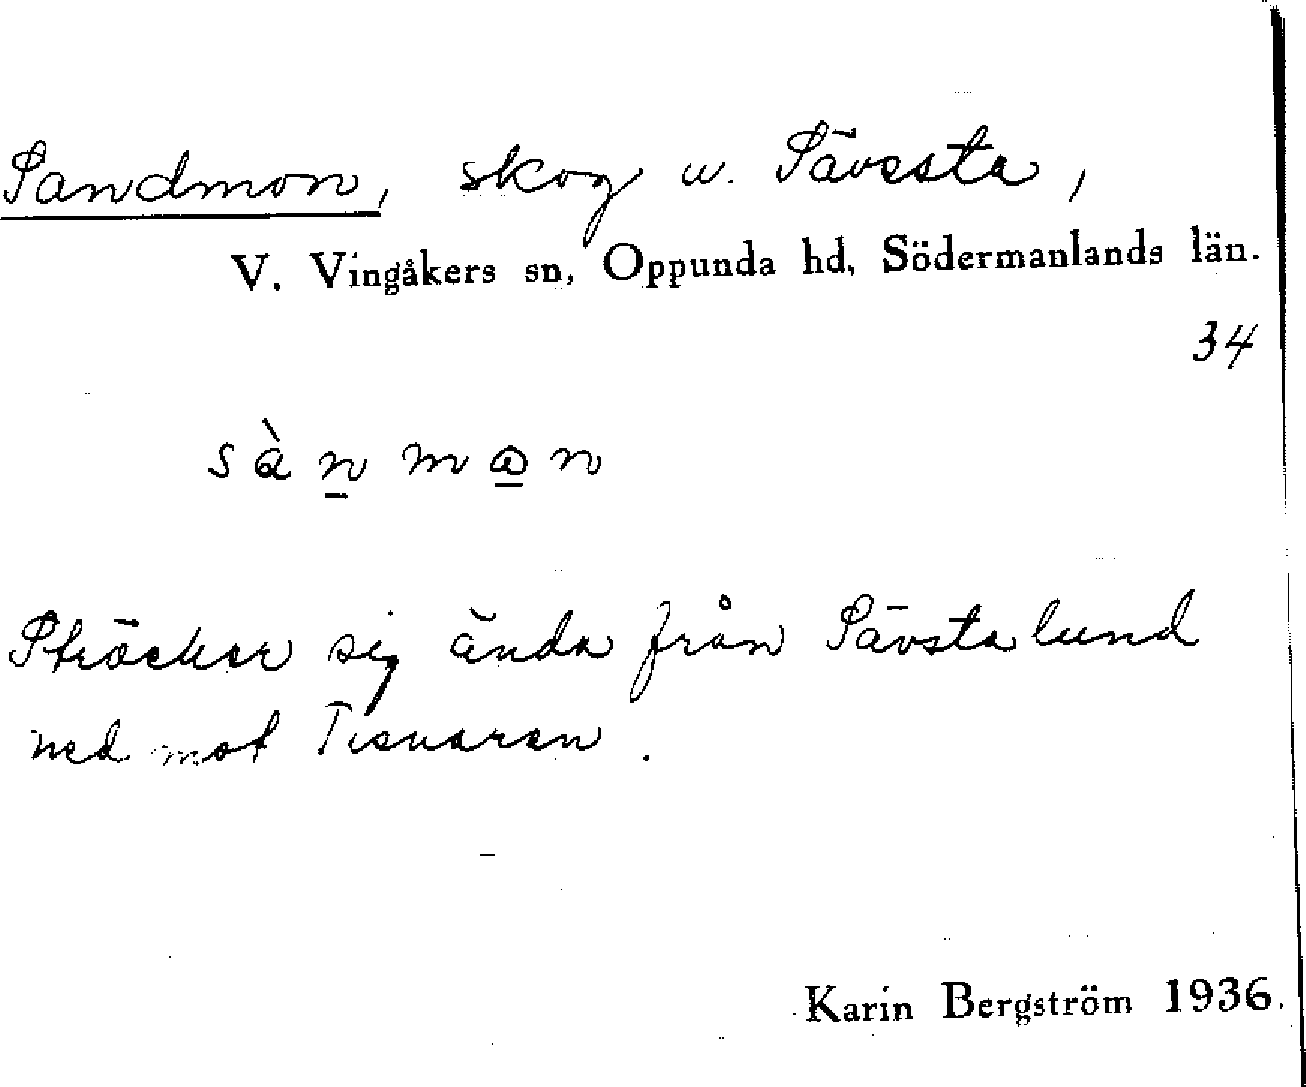 Sandmon, skog u. Sävsta,
V. Vingåkers sn, Oppunda hd, Södermanlands län.
34
sànmɷn
Sträcker sig ända från Sävstalund
ned mot Tisnaren.
Karin Bergström 1936.